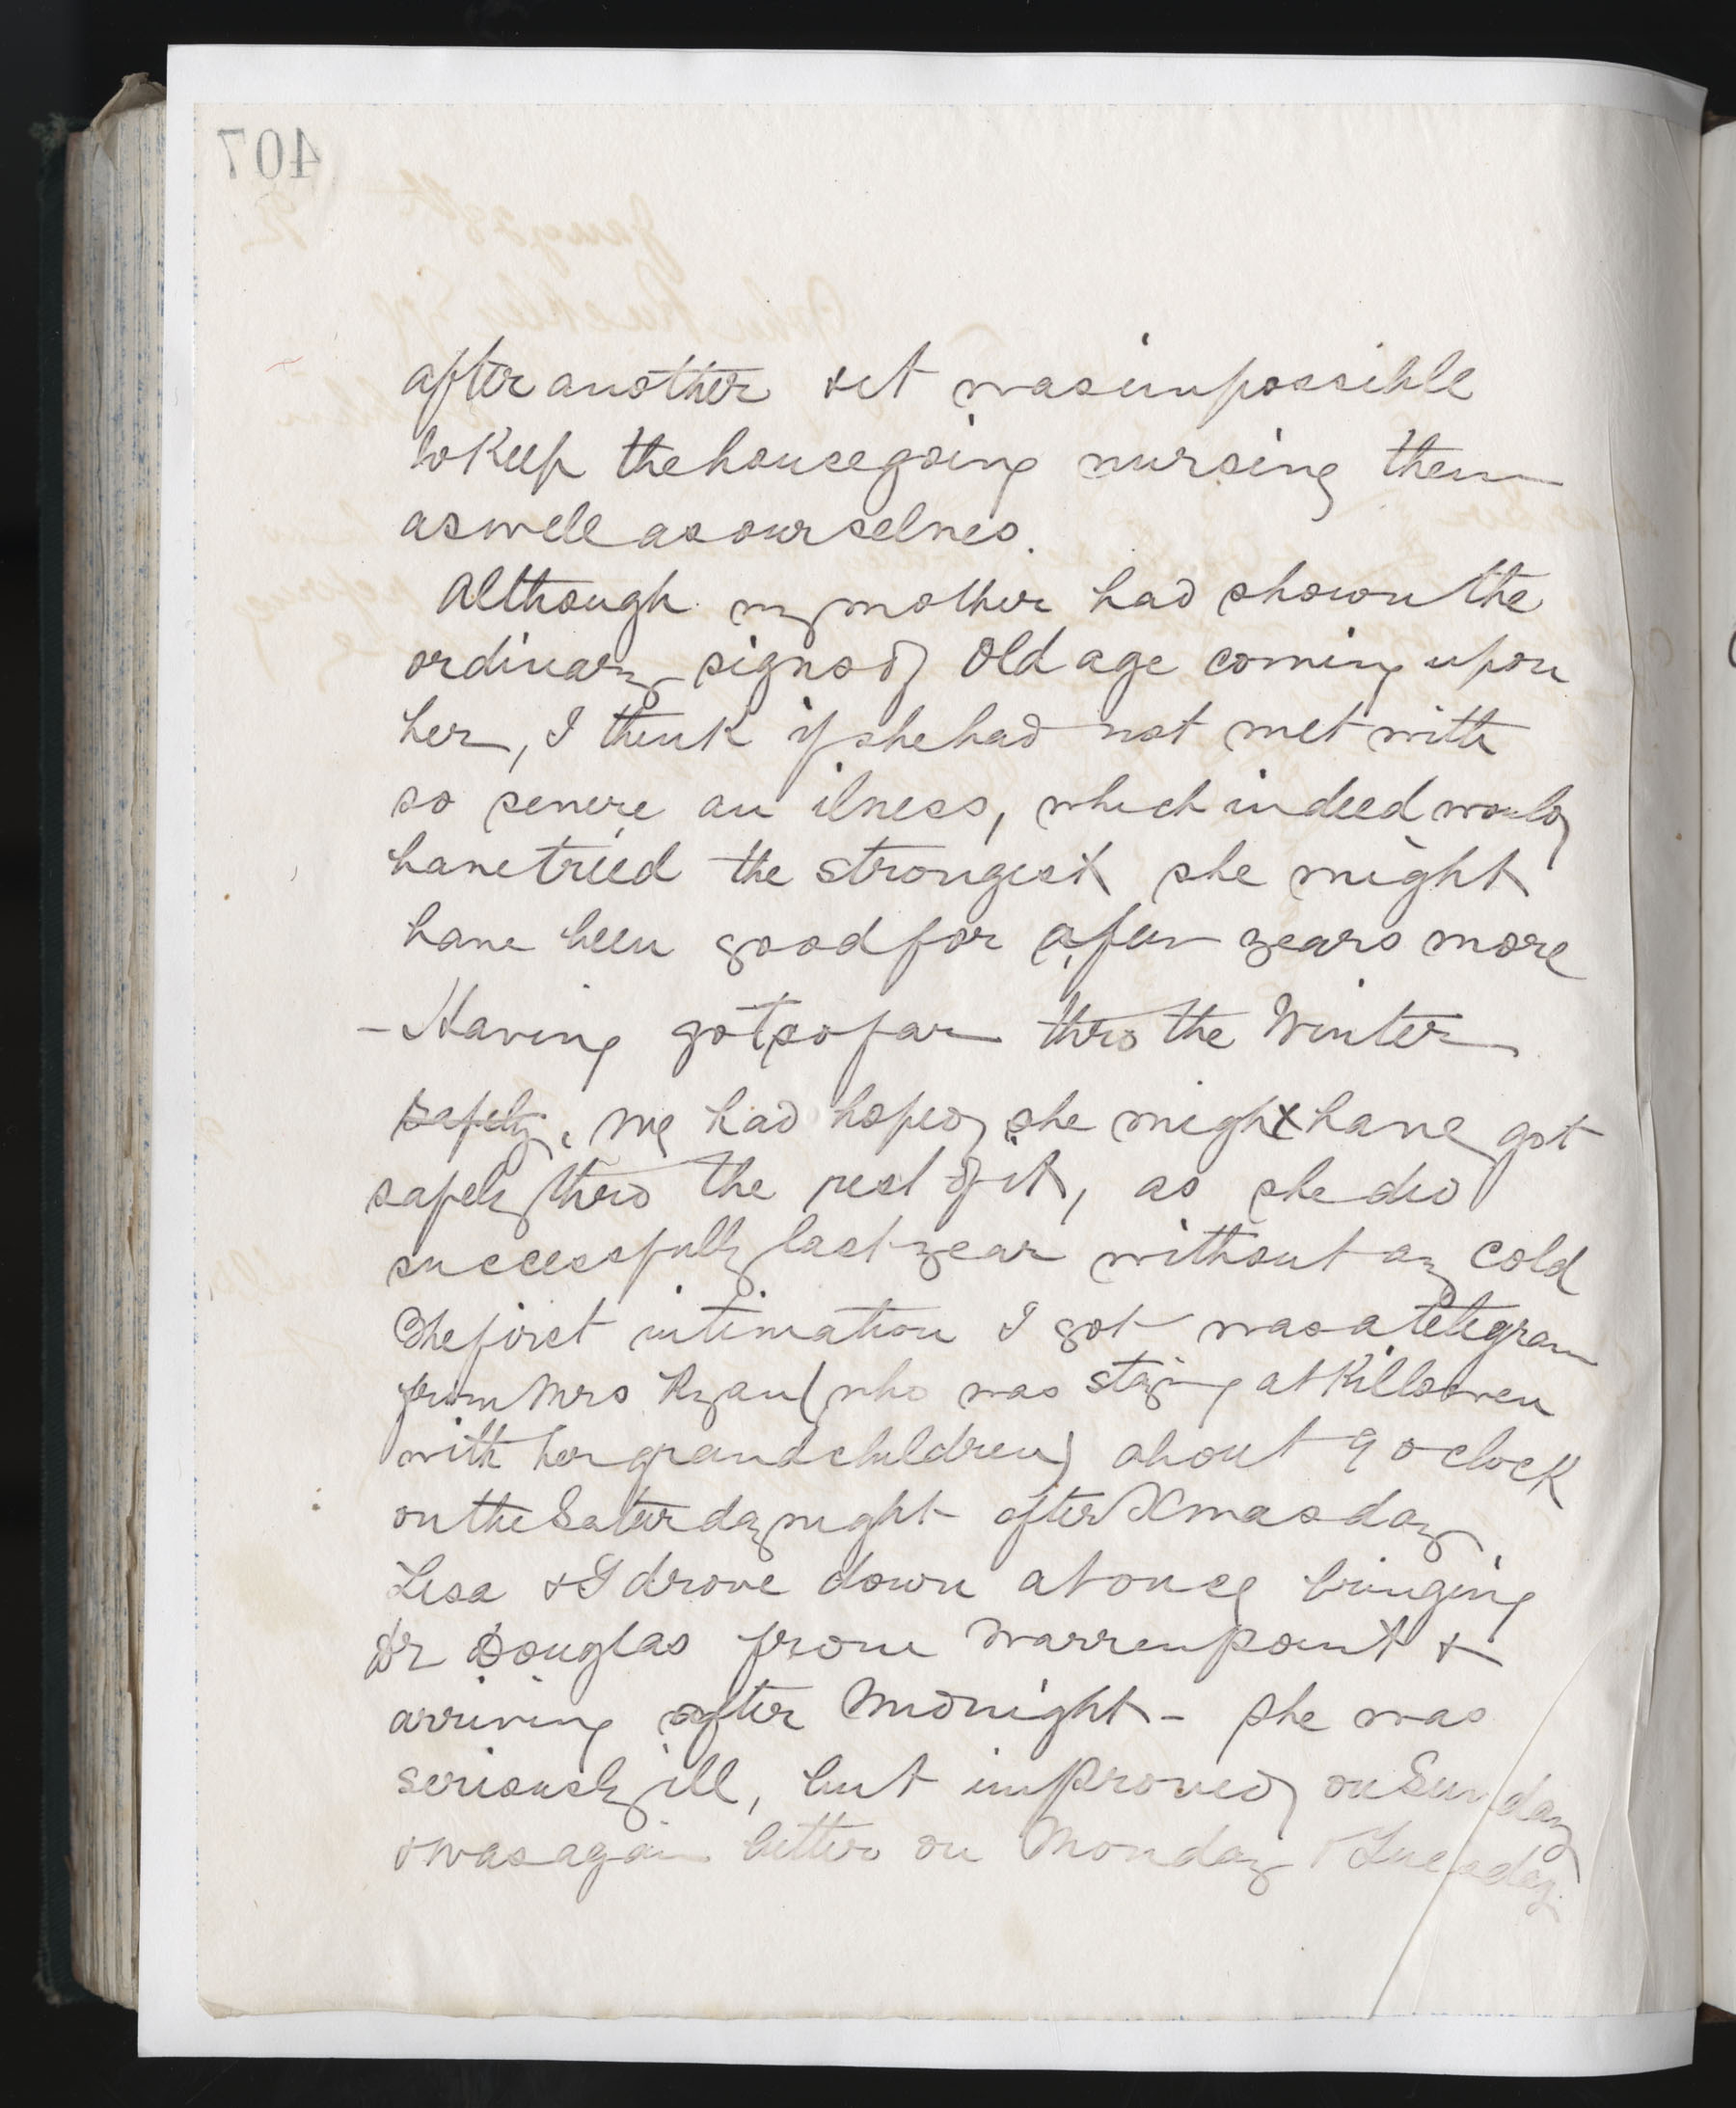 407
after another & it was impossible
to Keep the house going nursing them
as well as ourselves.
Although my mother had shown the
ordinary signs of Old age coming upon
her, I think if she had not met with
so severe an ilness, which indeed would
have tried the strongest she might
have been good for a few years more
- Having got so far thro the Winter
safely. We had hoped she might have got
safely thro the rest of it, as she did
successfully last year without any cold
The first intimation I got was a telegram
from Mrs Ryan (who was staying at Killowen
with her grandchildren) about 9 o clock
on the Saturday night after Xmas day
Lisa & I drove down at once bringing
Dr Douglas from Warrenpoint &
arriving after Midnight - She was
seriously ill, but improved on Sunday
& was again better on Monday & Tuesday.